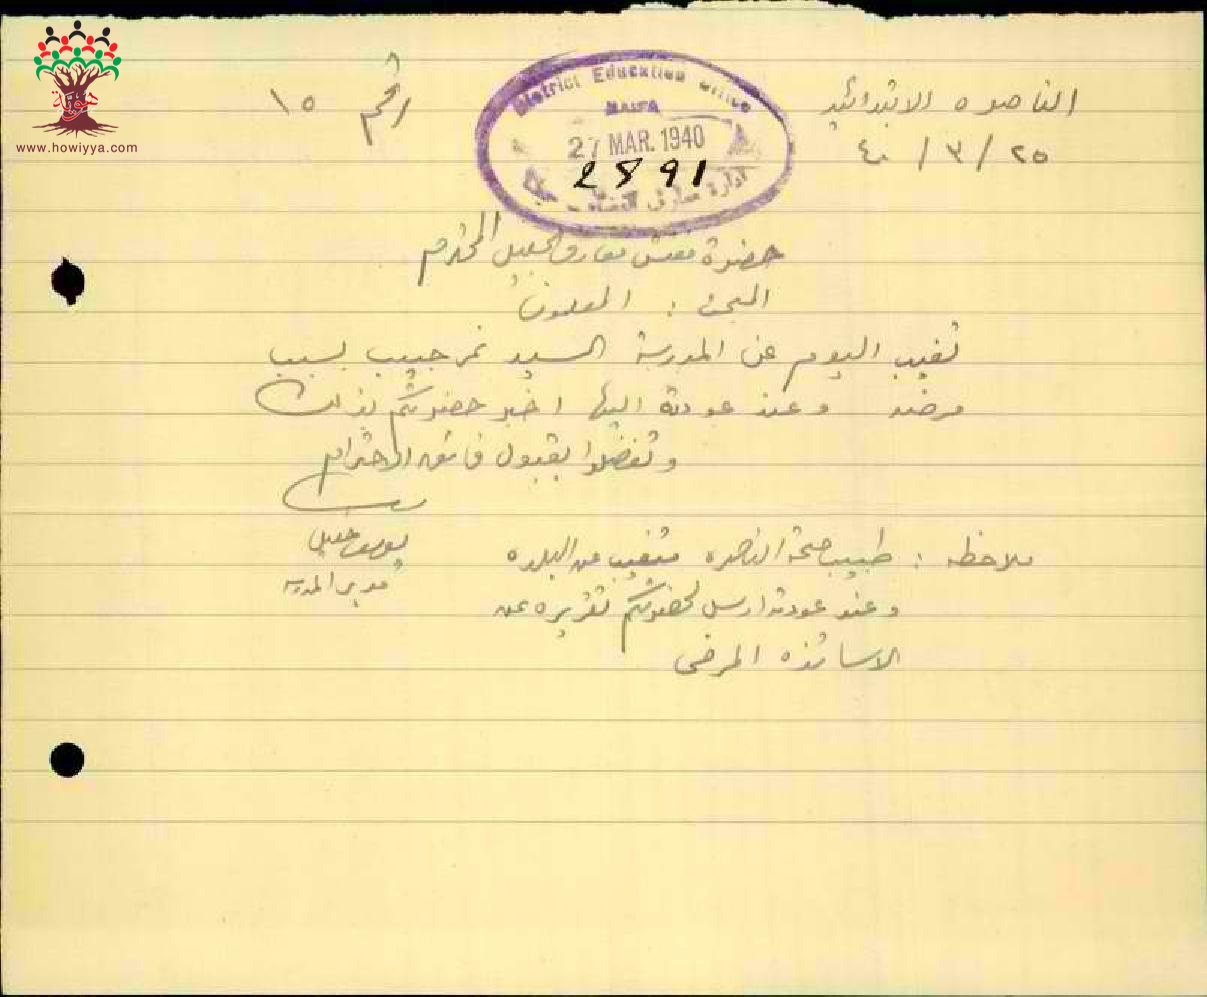 www.howiyya.com
الناصره الابتدائيه
الرقم ١٥
٢٥ / ٣ / ٤٠
District Education Office
HAIFA
27 MAR. 1940
2891
ادارة معارف
حضرة مفتش معارف الجليل المحترم
المبحث : المعلمون
تغيب اليوم عن المدرسة السيد نمر حبيب بسبب
مرضه وعند عودته اليها اخبر حضرتكم بذلك
وتفضلوا بقبول فائق الاحترام
ملاحظه : طبيب صحة الناصره متغيب عن البلده
يوسف
مدير المدرسه
وعند عودته ارسل لحضرتكم تقريره عن
الاساتذه المرضى